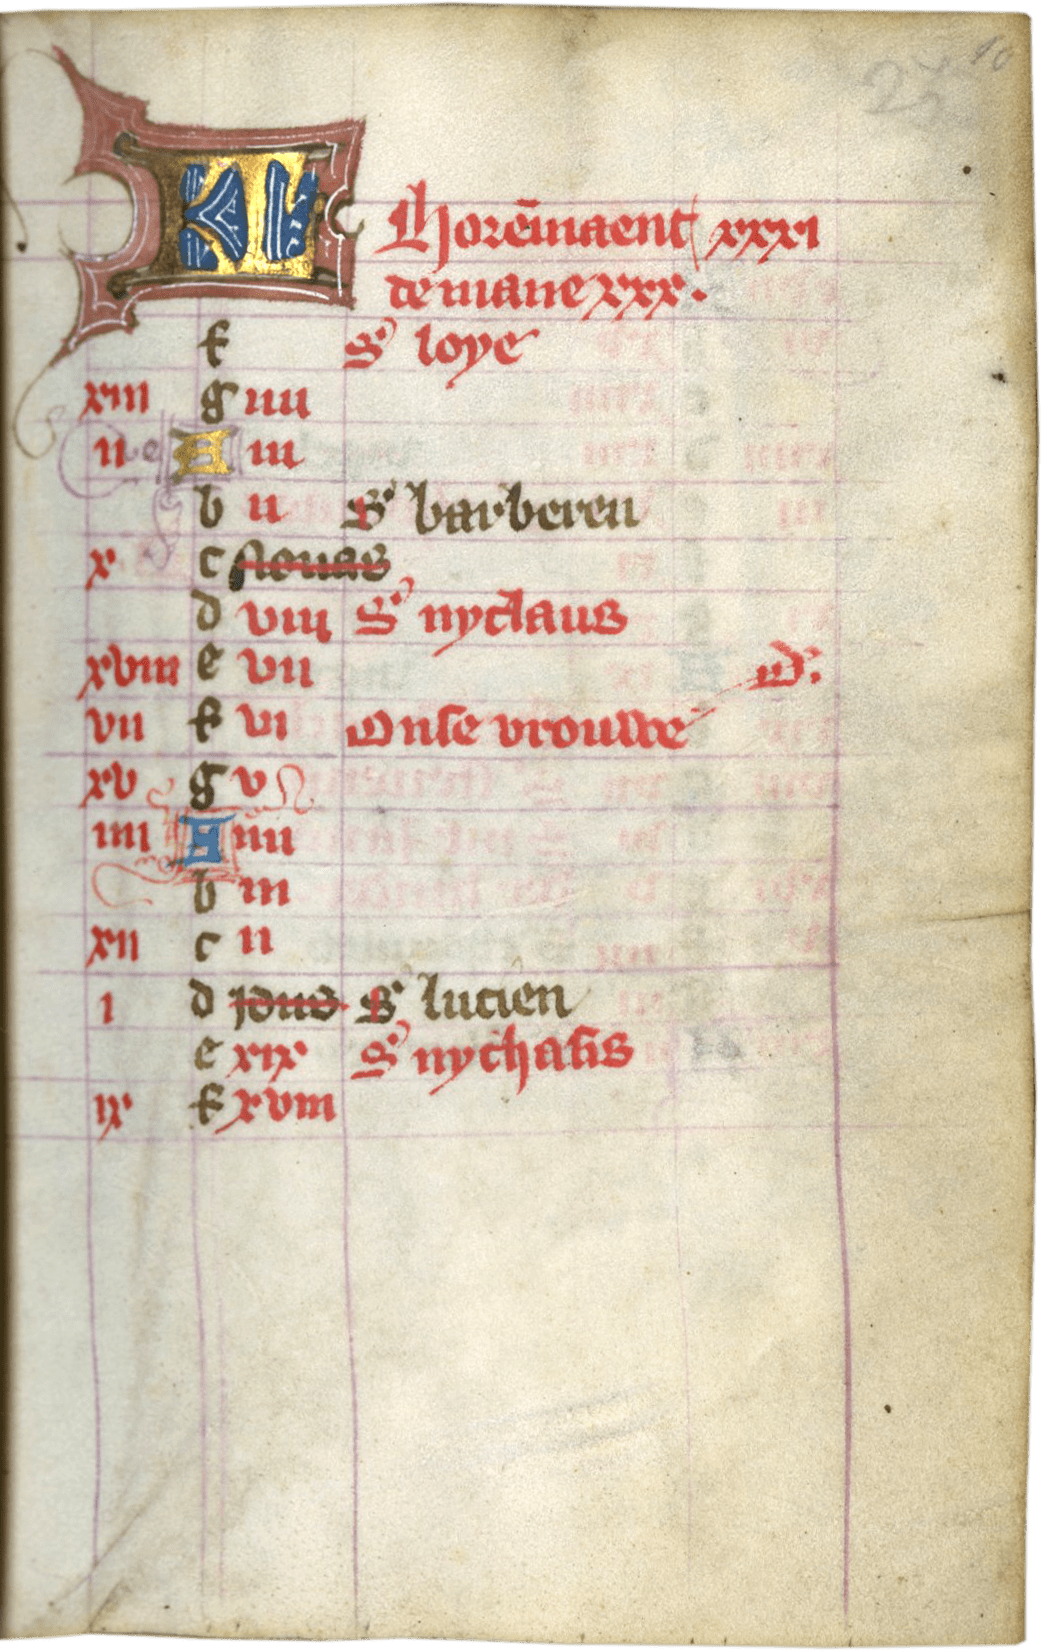 KL horēmaent xxxi
de mane xxx.
f S' loye
xiii g iiii
ii A iii
b ii S' barberen
x c Nonas
d viii S' nyclaus
xviii e vii
vii f vi Onse vrouwe
xv g v
iiii A iiii
b iii
xii c ii
i d ydus S' lucien
e xix S' nychasis
ix f xviii